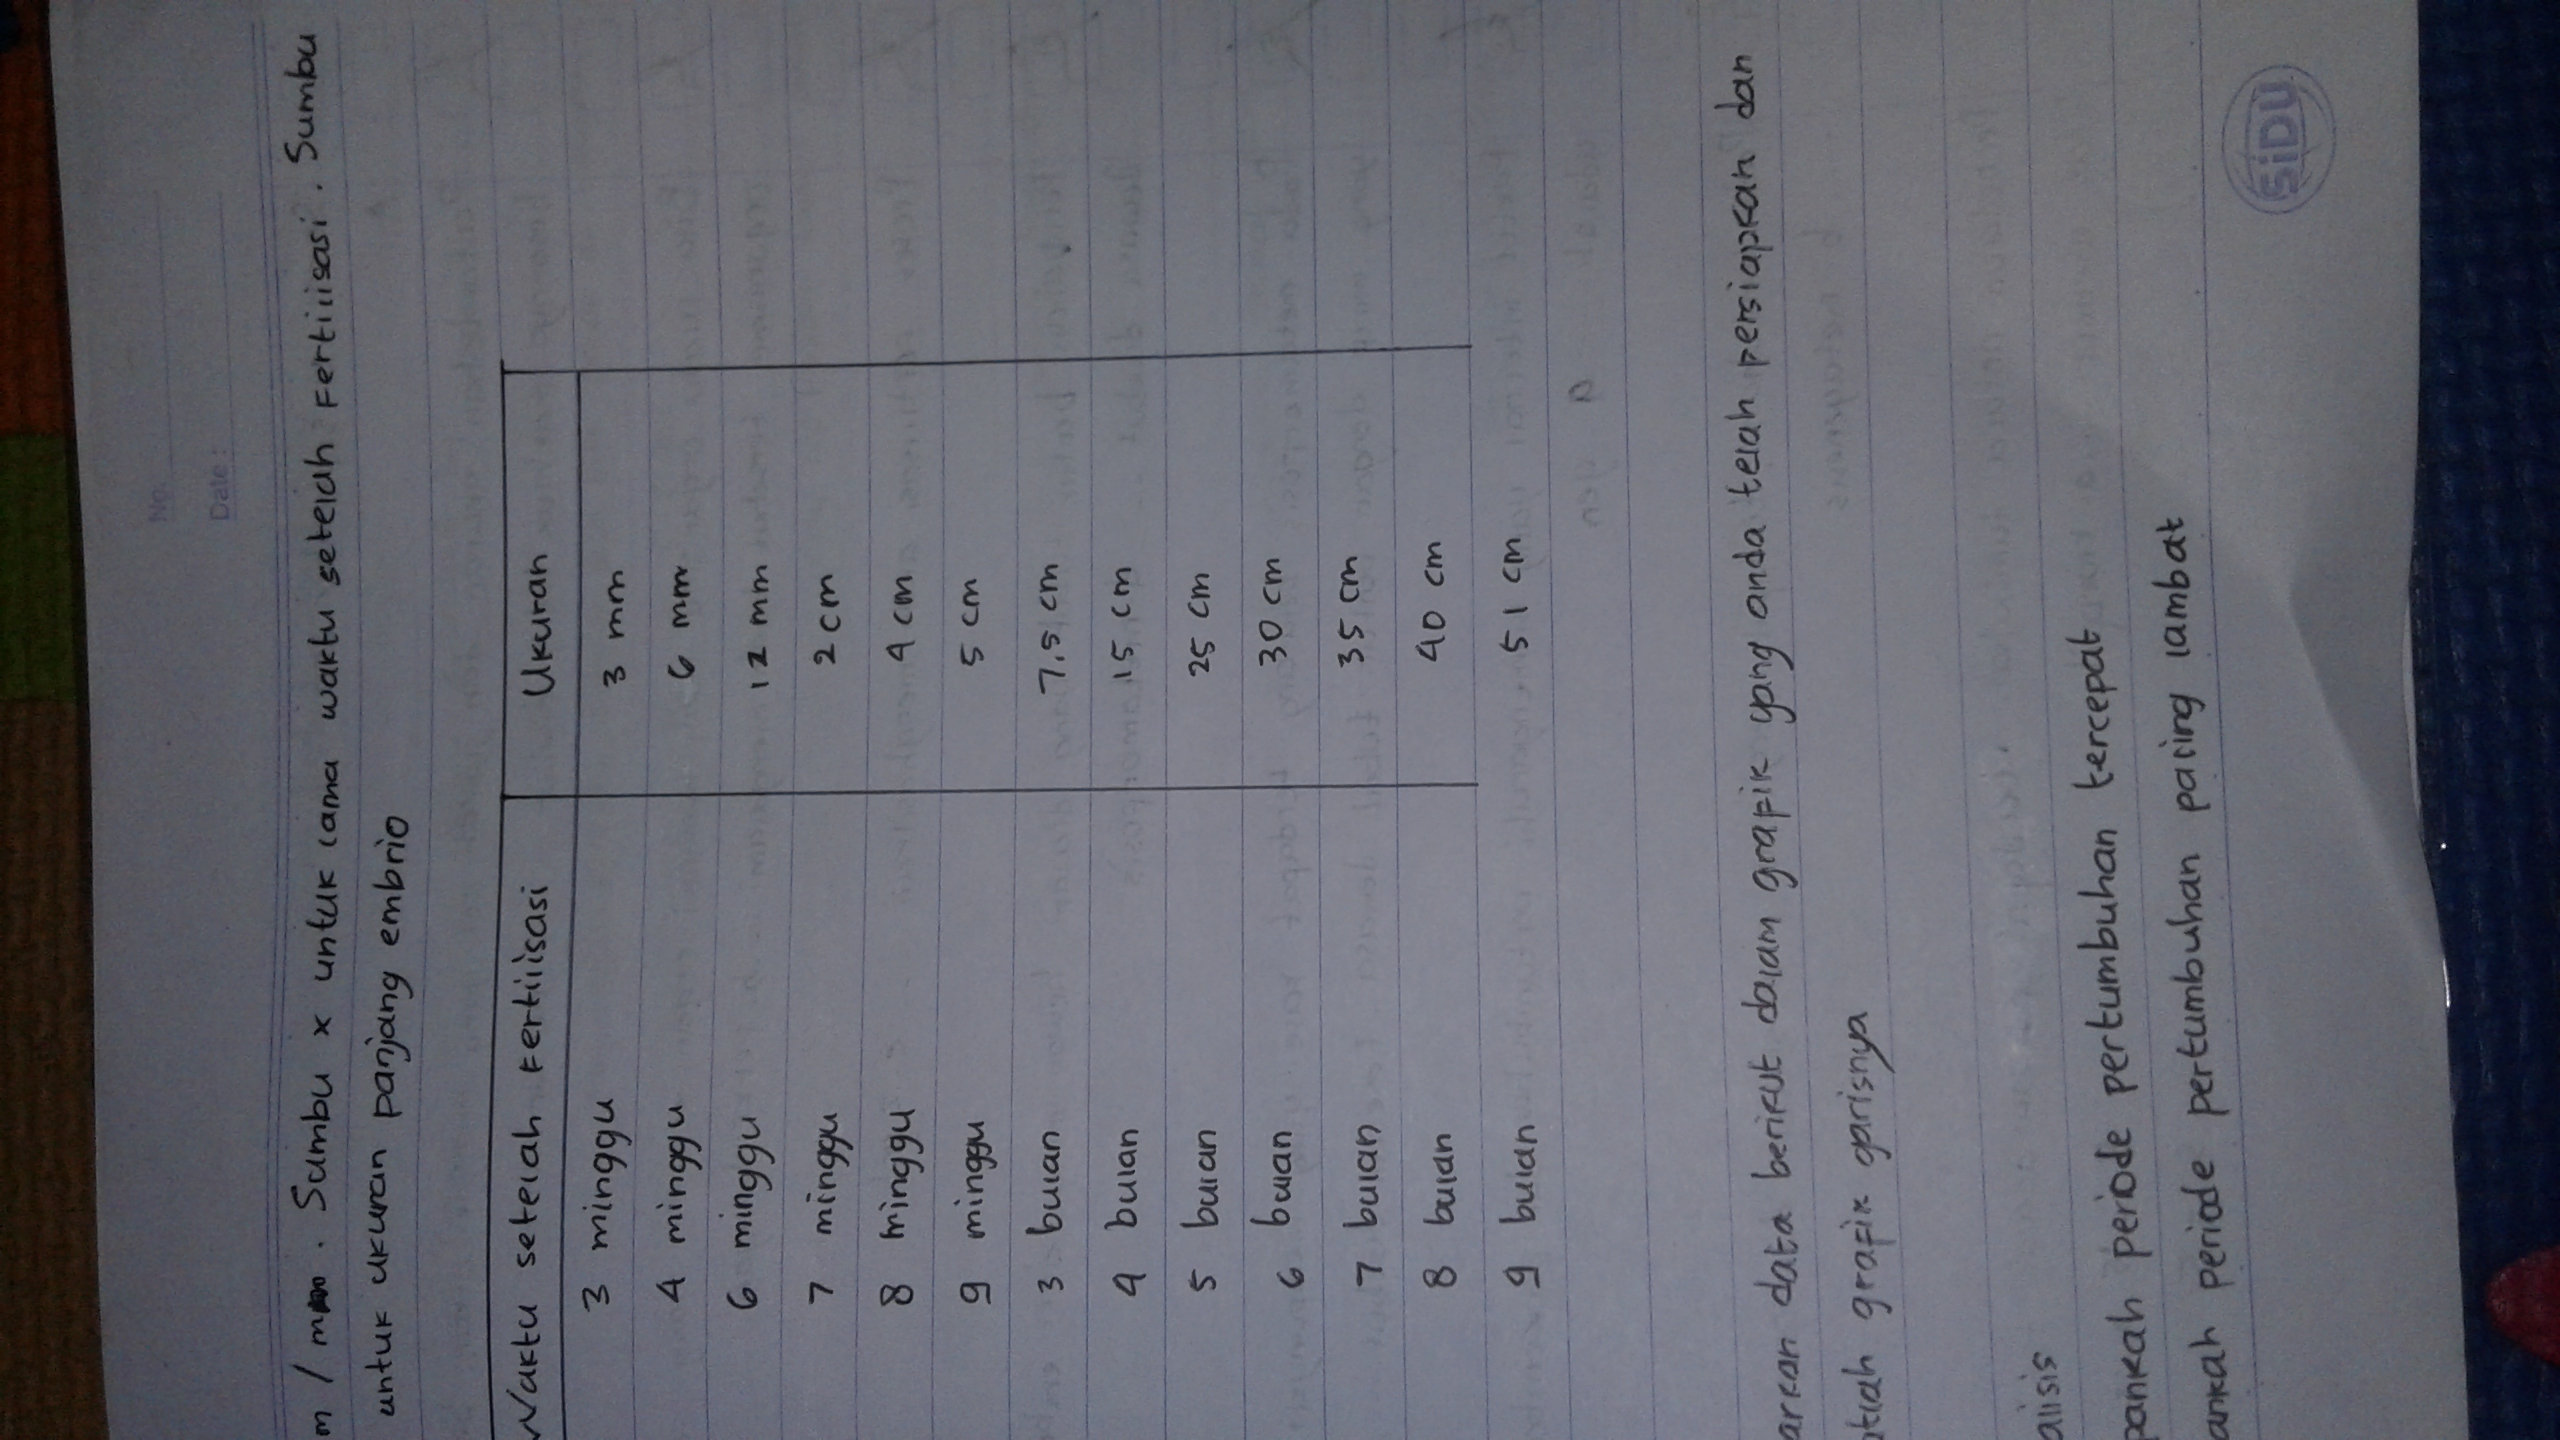 No.
Date :
m / mm. Sumbu x untuk lama waktu setelah Fertilisasi. Sumbu
untuk ukuran panjang embrio
Waktu setelah Fertilisasi Ukuran
3 minggu 3 mm
4 minggu 6 mm
6 minggu 12 mm
7 minggu 2 cm
8 minggu 4 cm
9 minggu 5 cm
3 bulan 7,5 cm
4 bulan 15 cm
5 bulan 25 cm
6 bulan 30 cm
7 bulan 35 cm
8 bulan 40 cm
9 bulan 51 cm
arkan data berikut dalam grafik yang anda telah persiapkan dan
atlah grafik garisnya
alisis
pankah periode pertumbuhan tercepat
ankah periode pertumbuhan paling lambat
SiDU